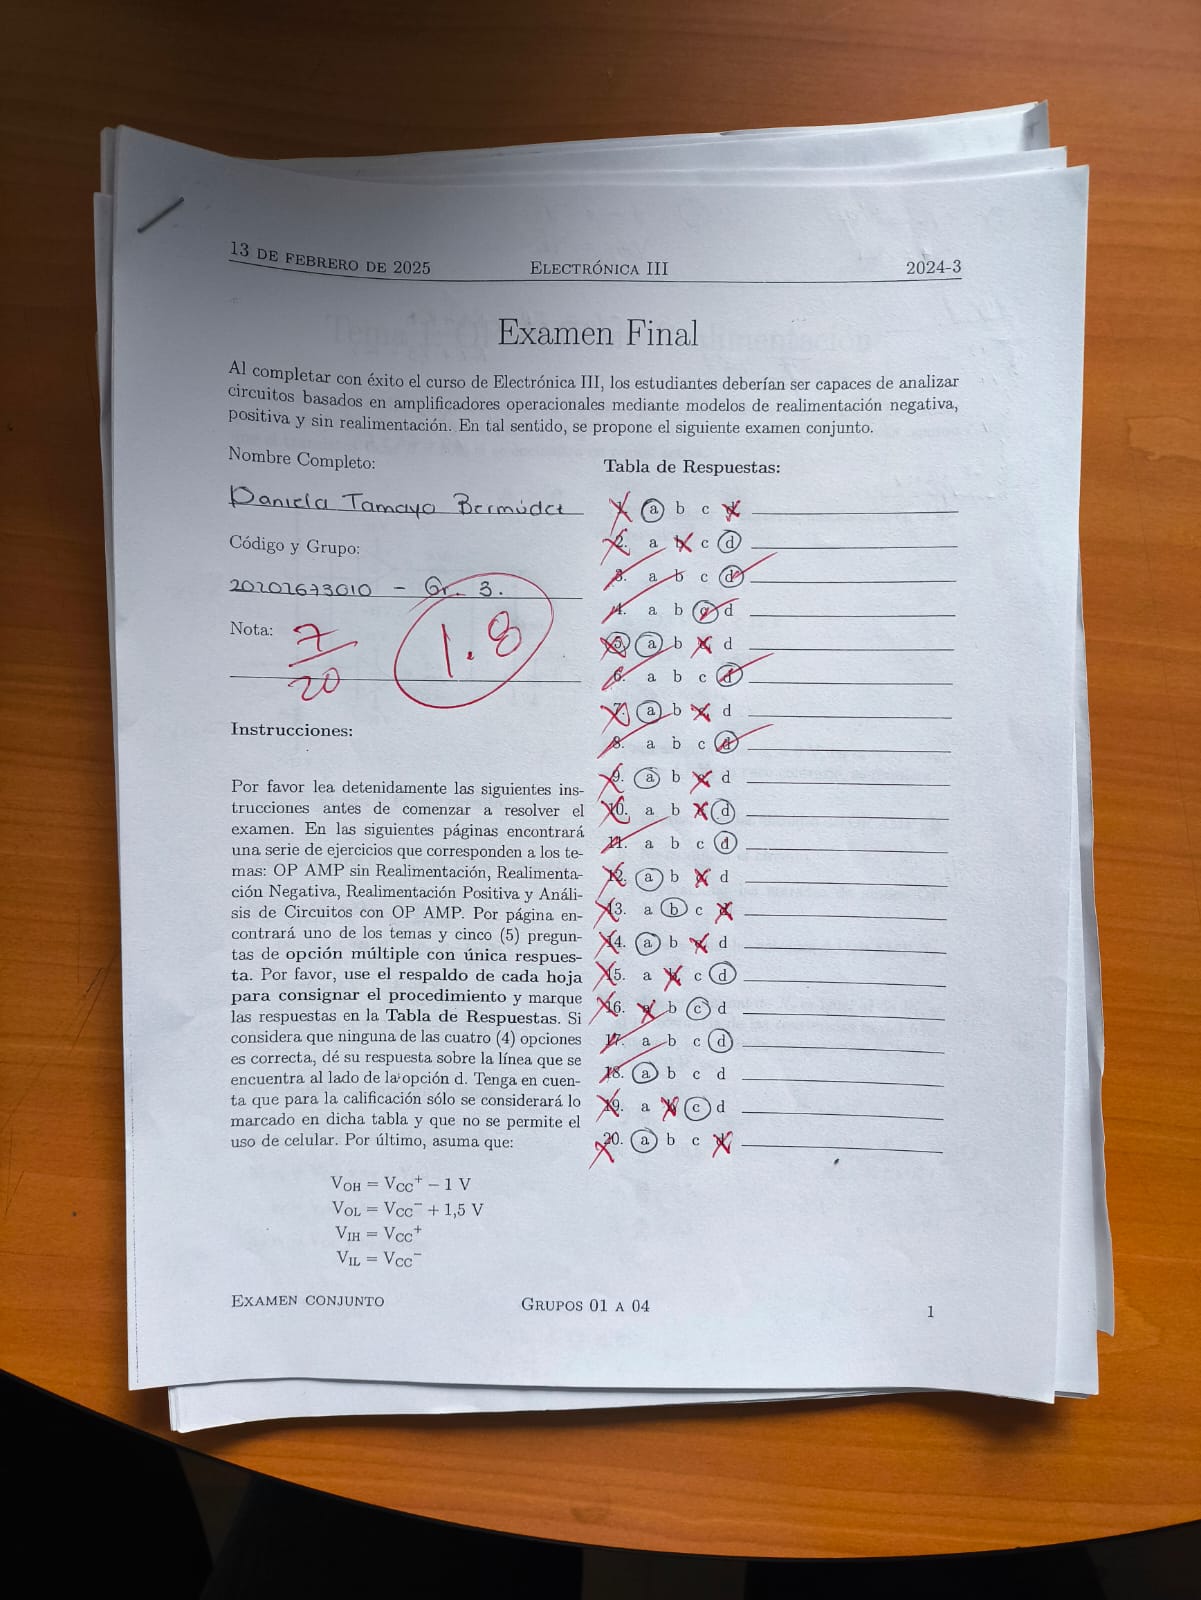 13 DE FEBRERO DE 2025 ELECTRÓNICA III 2024-3
Examen Final
Al completar con éxito el curso de Electrónica III, los estudiantes deberían ser capaces de analizar
circuitos basados en amplificadores operacionales mediante modelos de realimentación negativa,
positiva y sin realimentación. En tal sentido, se propone el siguiente examen conjunto.
Nombre Completo:
Daniela Tamayo Bermúdez
Código y Grupo:
20202673010 - Gr. 3.
Nota:
7/20
1.8
Instrucciones:
Por favor lea detenidamente las siguientes ins-
trucciones antes de comenzar a resolver el
examen. En las siguientes páginas encontrará
una serie de ejercicios que corresponden a los te-
mas: OP AMP sin Realimentación, Realimenta-
ción Negativa, Realimentación Positiva y Análi-
sis de Circuitos con OP AMP. Por página en-
contrará uno de los temas y cinco (5) pregun-
tas de opción múltiple con única respues-
ta. Por favor, use el respaldo de cada hoja
para consignar el procedimiento y marque
las respuestas en la Tabla de Respuestas. Si
considera que ninguna de las cuatro (4) opciones
es correcta, dé su respuesta sobre la línea que se
encuentra al lado de la opción d. Tenga en cuen-
ta que para la calificación sólo se considerará lo
marcado en dicha tabla y que no se permite el
uso de celular. Por último, asuma que:
VOH = VCC+ − 1 V
VOL = VCC− + 1,5 V
VIH = VCC+
VIL = VCC−
Tabla de Respuestas:
1. a b c d
2. a b c d
3. a b c d
4. a b c d
5. a b c d
6. a b c d
7. a b c d
8. a b c d
9. a b c d
10. a b c d
11. a b c d
12. a b c d
13. a b c d
14. a b c d
15. a b c d
16. a b c d
17. a b c d
18. a b c d
19. a b c d
20. a b c d
EXAMEN CONJUNTO GRUPOS 01 A 04 1